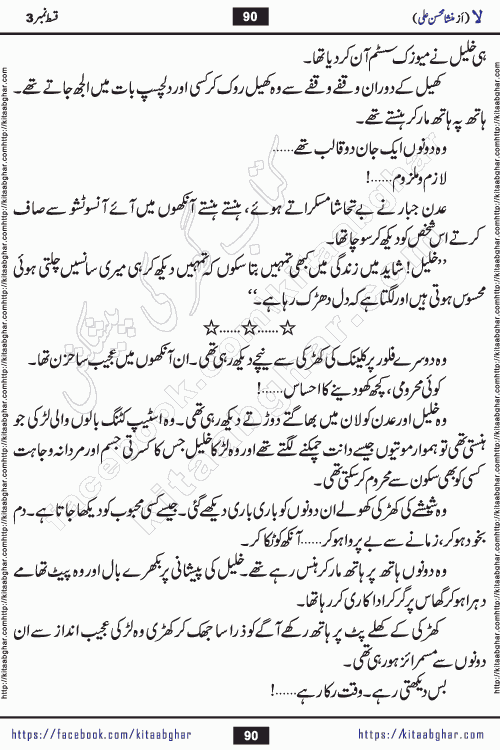 لا (از منشا محسن علی)
90
قسط نمبر 3
ہی خلیل نے میوزک سسٹم آن کر دیا تھا۔
کھیل کے دوران وقفے وقفے سے وہ کھیل روک کر کسی اور دلچسپ بات میں الجھ جاتے تھے۔
ہاتھ پہ ہاتھ مار کر ہنستے تھے۔
وہ دونوں ایک جان دو قالب تھے......
لازم و ملزوم......!
عدن جبار نے بے تحاشا مسکراتے ہوئے، ہنستے ہنستے آنکھوں میں آئے آنسو ٹشو سے صاف
کرتے اس شخص کو دیکھ کر سوچا تھا۔
’’خلیل! شاید میں زندگی میں کبھی تمہیں بتا سکوں کہ تمہیں دیکھ کر ہی میری سانسیں چلتی ہوئی
محسوس ہوتی ہیں اور لگتا ہے کہ دل دھڑک رہا ہے۔‘‘
☆......☆......☆
وہ دوسرے فلور پر کلینک کی کھڑکی سے نیچے دیکھ رہی تھی۔ ان آنکھوں میں عجیب سا حزن تھا۔
کوئی محرومی، کچھ کھو دینے کا احساس......!
وہ خلیل اور عدن کو لان میں بھاگتے دوڑتے دیکھ رہی تھی۔ وہ اسٹیپ کٹنگ بالوں والی لڑکی جو
ہنستی تھی تو ہموار موتیوں جیسے دانت چمکنے لگتے تھے اور وہ لڑکا خلیل جس کا کسرتی جسم اور مردانہ وجاہت
کسی کو بھی سکون سے محروم کر سکتی تھی۔
وہ شیشے کی کھڑکی کھولے ان دونوں کو باری باری دیکھے گئی۔ جیسے کسی محبوب کو دیکھا جاتا ہے۔ دم
بخود ہو کر، زمانے سے بے پروا ہو کر......آنکھ کو ٹکا کر۔
وہ دونوں ہاتھ پر ہاتھ مار کر ہنس رہے تھے۔ خلیل کی پیشانی پر بکھرے بال اور وہ پیٹ تھامے
دہرا ہو کر گھاس پر گر کر اداکاری کر رہا تھا۔
کھڑکی کے کھلے پٹ پر ہاتھ رکھے آگے کو ذرا سا جھک کر کھڑی وہ لڑکی عجیب انداز سے ان
دونوں سے مسمرائز ہو رہی تھی۔
بس دیکھتی رہے۔ وقت رکا رہے......!
https://facebook.com/kitaabghar
90
https://kitaabghar.com